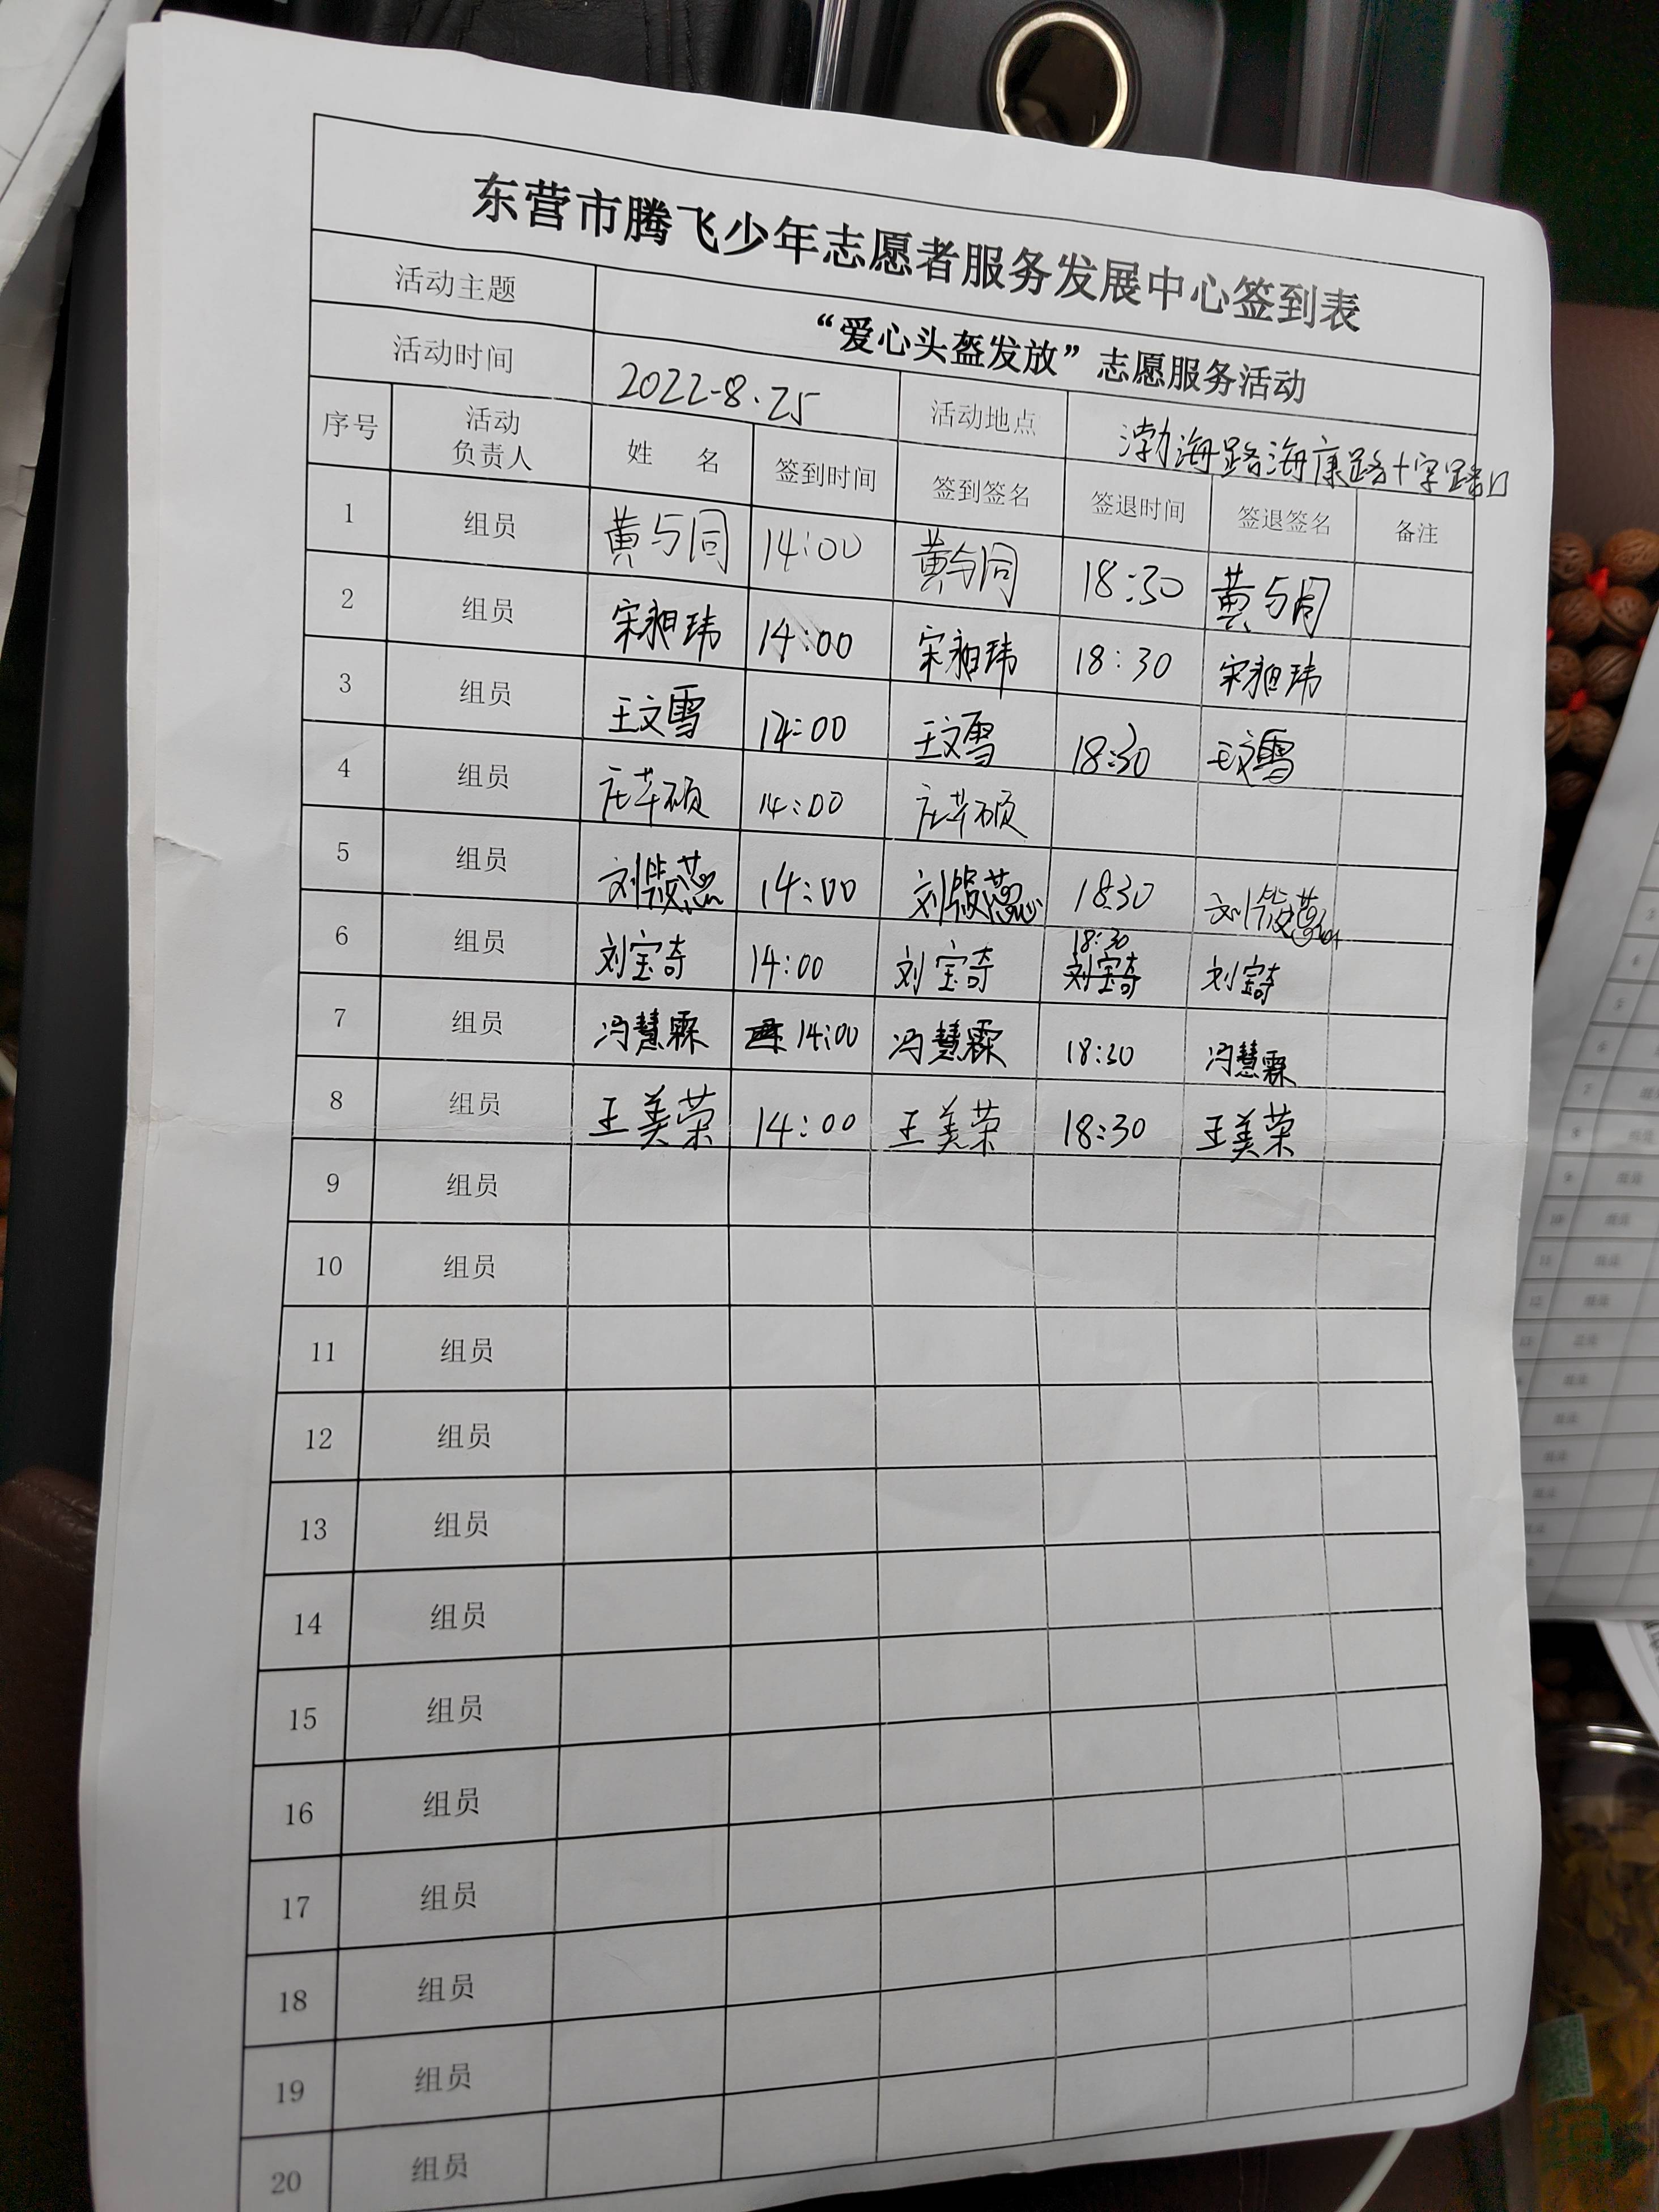 东营市腾飞少年志愿者服务发展中心签到表
活动主题 “爱心头盔发放”志愿服务活动
活动时间 2022-8.25 活动地点 渤海路海康路十字路口
序号 活动负责人 姓 名 签到时间 签到签名 签退时间 签退签名 备注
1 组员 黄与同 14:00 黄与同 18:30 黄与同
2 组员 宋昶玮 14:00 宋昶玮 18:30 宋昶玮
3 组员 王文雪 14:00 王文雪 18:30 王文雪
4 组员 14:00
5 组员 刘筱蕊 14:00 刘筱蕊 18:30 刘筱蕊
6 组员 刘宝奇 14:00 刘宝奇 18:30 刘宝奇 刘宝奇
7 组员 冯慧霖 14:00 冯慧霖 18:30 冯慧霖
8 组员 王美荣 14:00 王美荣 18:30 王美荣
9 组员
10 组员
11 组员
12 组员
13 组员
14 组员
15 组员
16 组员
17 组员
18 组员
19 组员
20 组员